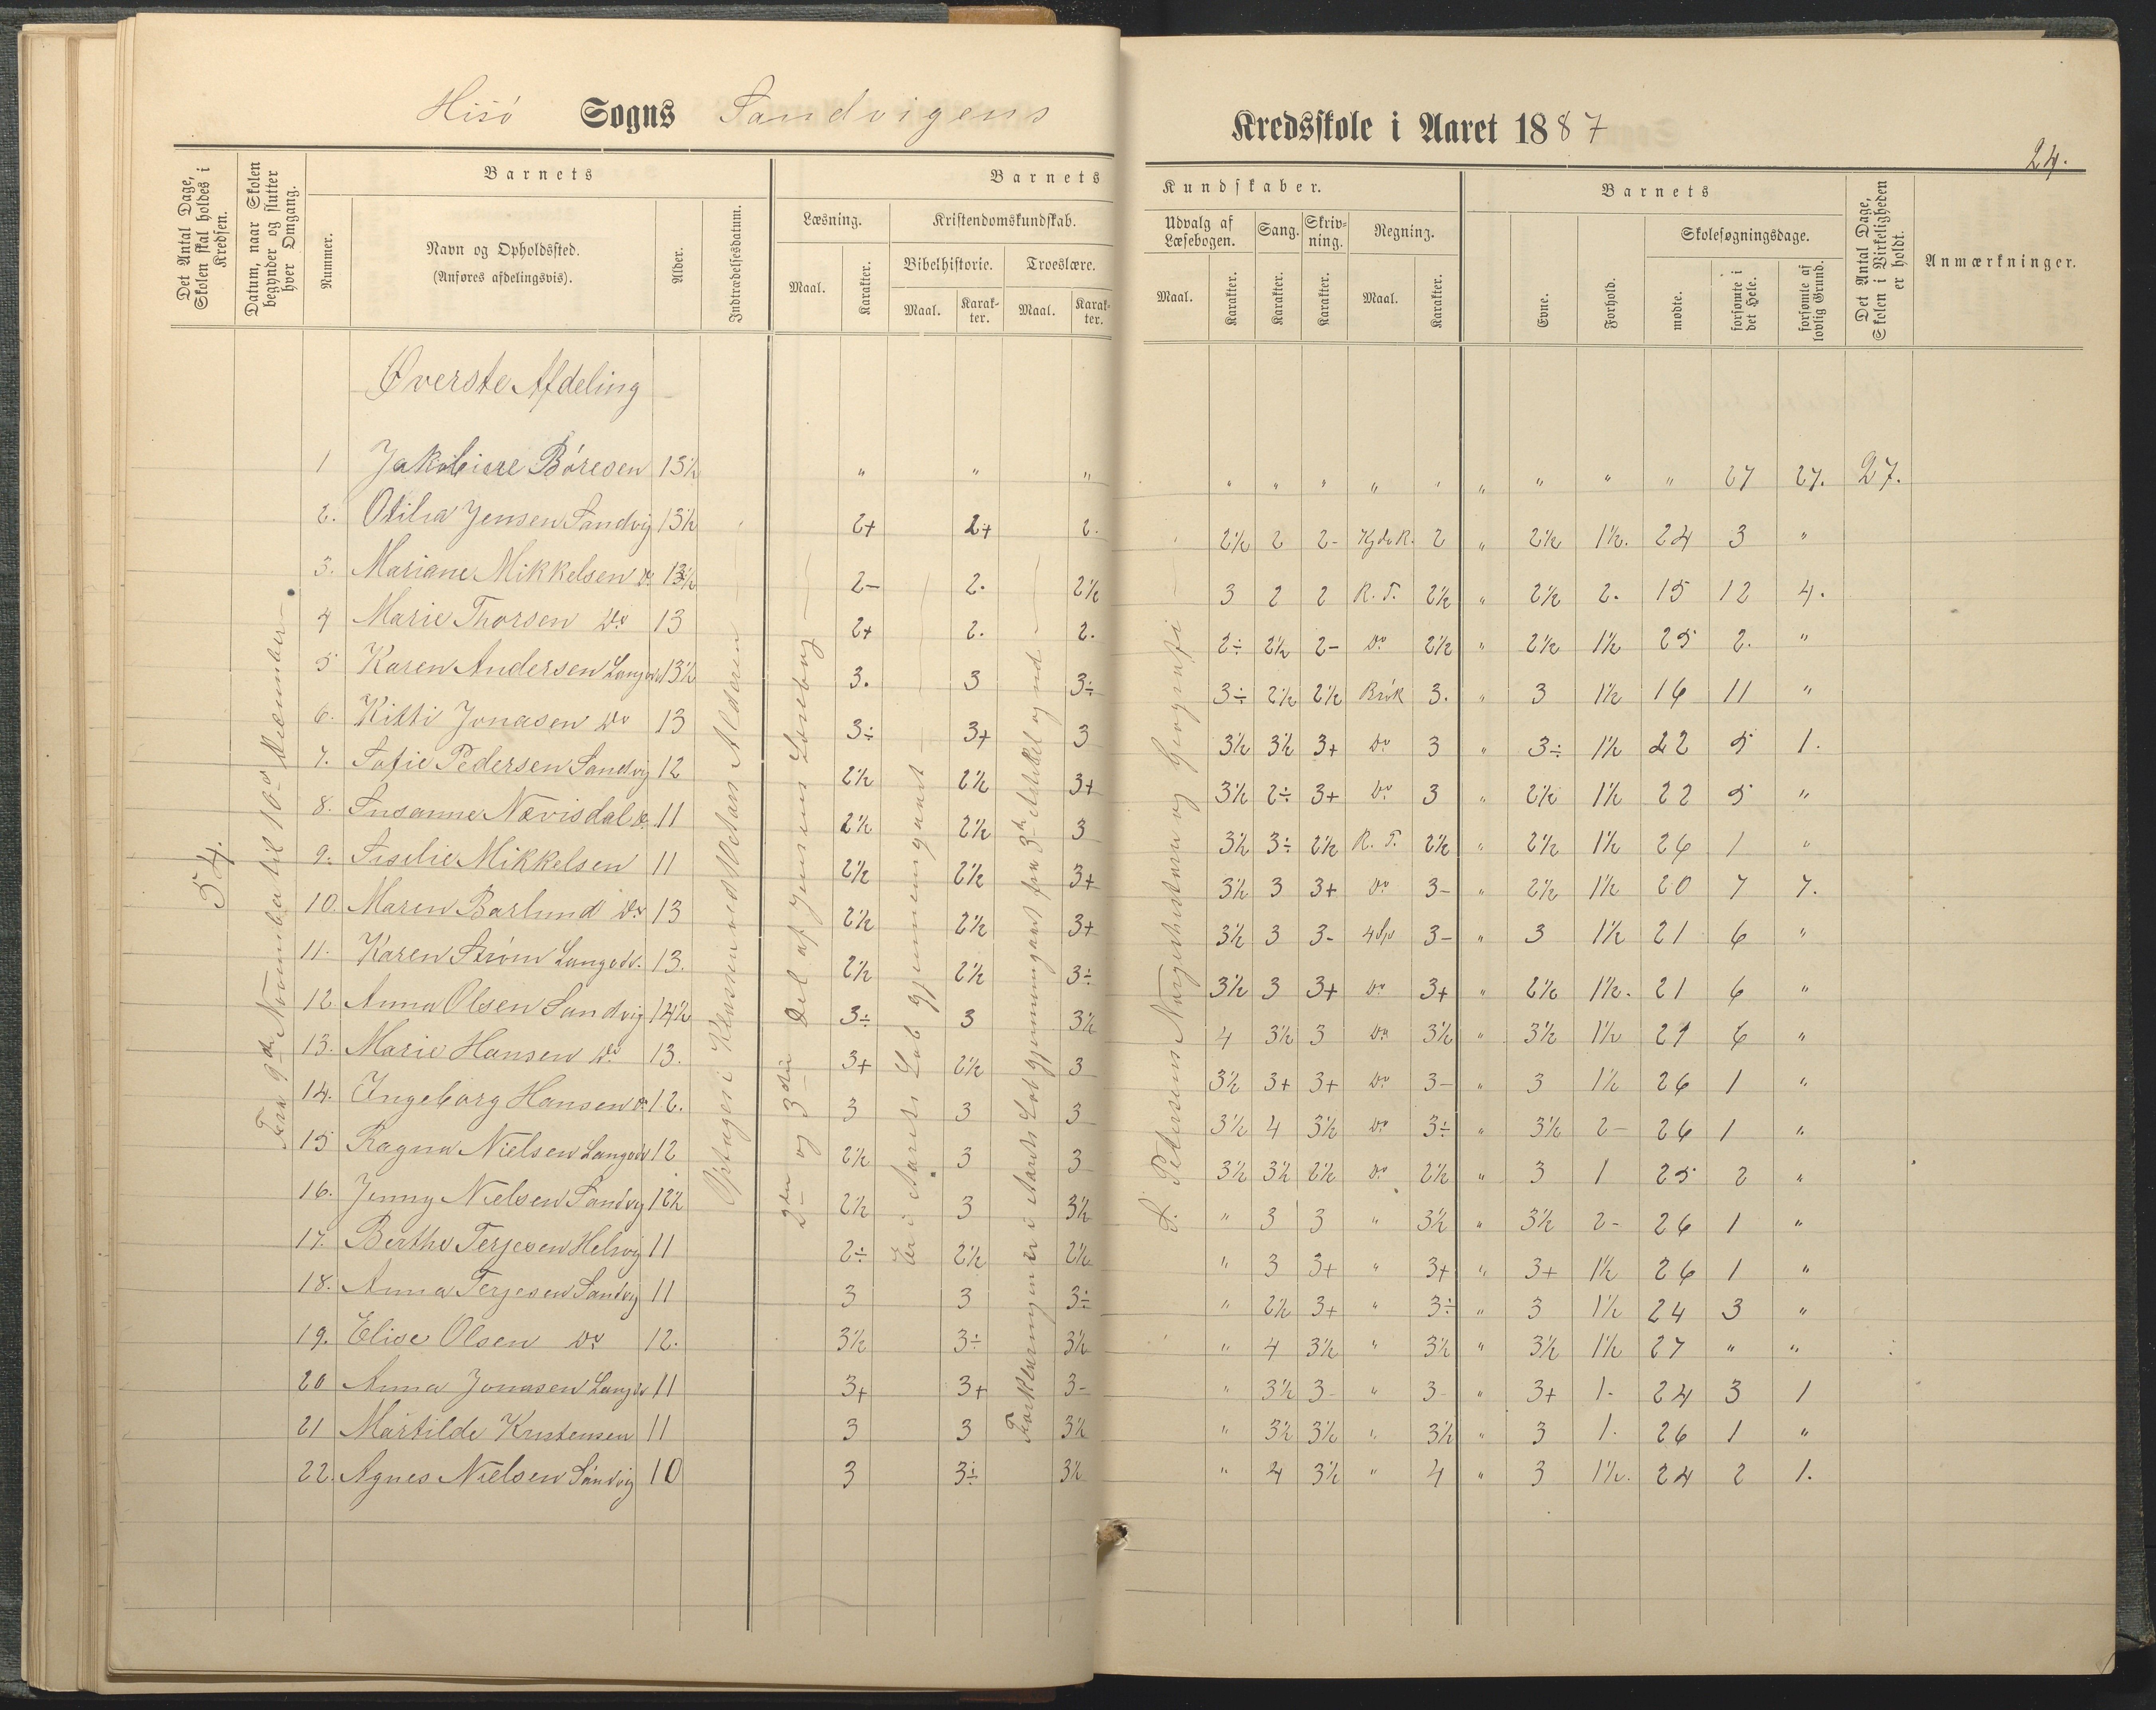 Hisö Sogns Sandvigens Kredsskole i Aaret 1887
24.
Det Antal Dage, Skolen skal holdes i Kredsen.
Datum, naar Skolen begynder og slutter hver Omgang.
Barnets
Nummer.
Navn og Opholdssted.
(Anføres afdelingsvis).
Alder.
Indtrædelsesdatum.
Barnets Kundskaber.
Læsning.
Maal.
Karakter.
Kristendomskundskab.
Bibelhistorie.
Maal.
Karakter.
Troeslære.
Maal.
Karakter.
Udvalg af Læsebogen.
Maal.
Karakter.
Sang.
Karakter.
Skrivning.
Karakter.
Regning.
Maal.
Karakter.
Barnets
Evne.
Forhold.
Skolesøgningsdage.
mødte.
forsømte i det Hele.
forsømte af lovlig Grund.
Det Antal Dage, Skolen i Virkeligheden er holdt.
Anmærkninger.
Øverste Afdeling
54.
Fra 9de November til 10de December
Optages i Klassen ved Alderen
2den og 3die Del af Jensens Læsebog
Er i Aarets Løb gjennemgaaet
Forklaringen er i Aarets Løb gjennemgaaet fra 3de Artikel og ud
S. Petersens Norgeshistorie og Geografi
1 Jakobine Børesen 13½ " " " " " " " " " " " " 27 27. 27.
2. Otilia Jensen Sandvig 13½ 2+ 2+ 2. 2½ 2 2- Kjdr. 2 " 2½ 1½. 24 3 "
3. Mariane Mikkelsen do 13½ 2- 2. 2½ 3 2 2 R. T. 2½ " 2½ 2. 15 12 4.
4 Marie Thorsen do 13 2+ 2. 2. 2÷ 2½ 2- do 2½ " 2½ 1½ 25 2. "
5 Karen Andersen Langedv 13½ 3. 3 3÷ 3÷ 2½ 2½ Brök 3. " 3 1½ 16 11 "
6. Kitti Jonasen do 13 3÷ 3+ 3 3½ 3½ 3+ do 3 " 3÷ 1½ 22 5 1.
7. Sofie Pedersen Sandvig 12 2½ 2½ 3+ 3½ 2÷ 3+ do 3 " 2½ 1½ 22 5 "
8. Susanne Nævisdal do 11 2½ 2½ 3 3½ 3÷ 2½ R. T. 2½ " 2½ 1½ 26 1 "
9. Mikkelsen 11 2½ 2½ 3+ 3½ 3 3+ do 3- " 2½ 1½ 20 7 7.
10. Maren Barlund do 13 2½ 2½ 3+ 3½ 3 3- 4 Sp 3- " 3 1½ 21 6 "
11. Karen Strøm Langedv. 13. 2½ 2½ 3÷ 3½ 3 3+ do 3+ " 2½ 1½. 21 6 "
12. Anna Olsen Sandvig 14½ 3÷ 3 3½ 4 3½ 3 do 3½ " 3½ 1½ 21 6 "
13. Marie Hansen do 13. 3+ 2½ 3 3½ 3+ 3+ do 3- " 3 1½ 26 1 "
14. Ingeborg Hansen do 12. 3 3 3 3½ 4 3½ do 3÷ " 3½ 2- 26 1 "
15 Ragna Nielsen Langedv 12 2½ 3 3 3½ 3½ 2½ do 2½ " 3 1 25 2 "
16. Jenny Nielsen Sandvig 12½ 2½ 3 3½ " 3 3 " 3½ " 3½ 2- 26 1 "
17. Berthe Terjesen Helvig 11 2÷ 2½ 2½ " 3 3+ " 3+ " 3+ 1½ 26 1 "
18. Anna Terjesen Sandvig 11 3 3 3÷ " 2½ 3+ " 3÷ " 3 1½ 24 3 "
19. Elise Olsen do 12. 3½ 3÷ 3½ " 4 3½ " 3½ " 3½ 1½ 27 " "
20 Anna Jonasen Langedv 11 3+ 3+ 3- " 3½ 3- " 3- " 3+ 1- 24 3 1
21 Martilde Kristensen 11 3 3 3½ " 3½ 3½ " 3½ " 3 1. 26 1 "
22. Agnes Nielsen Sandvig 10 3 3÷ 3½ " 4 3½ " 4 " 3 1½. 24 2 1.